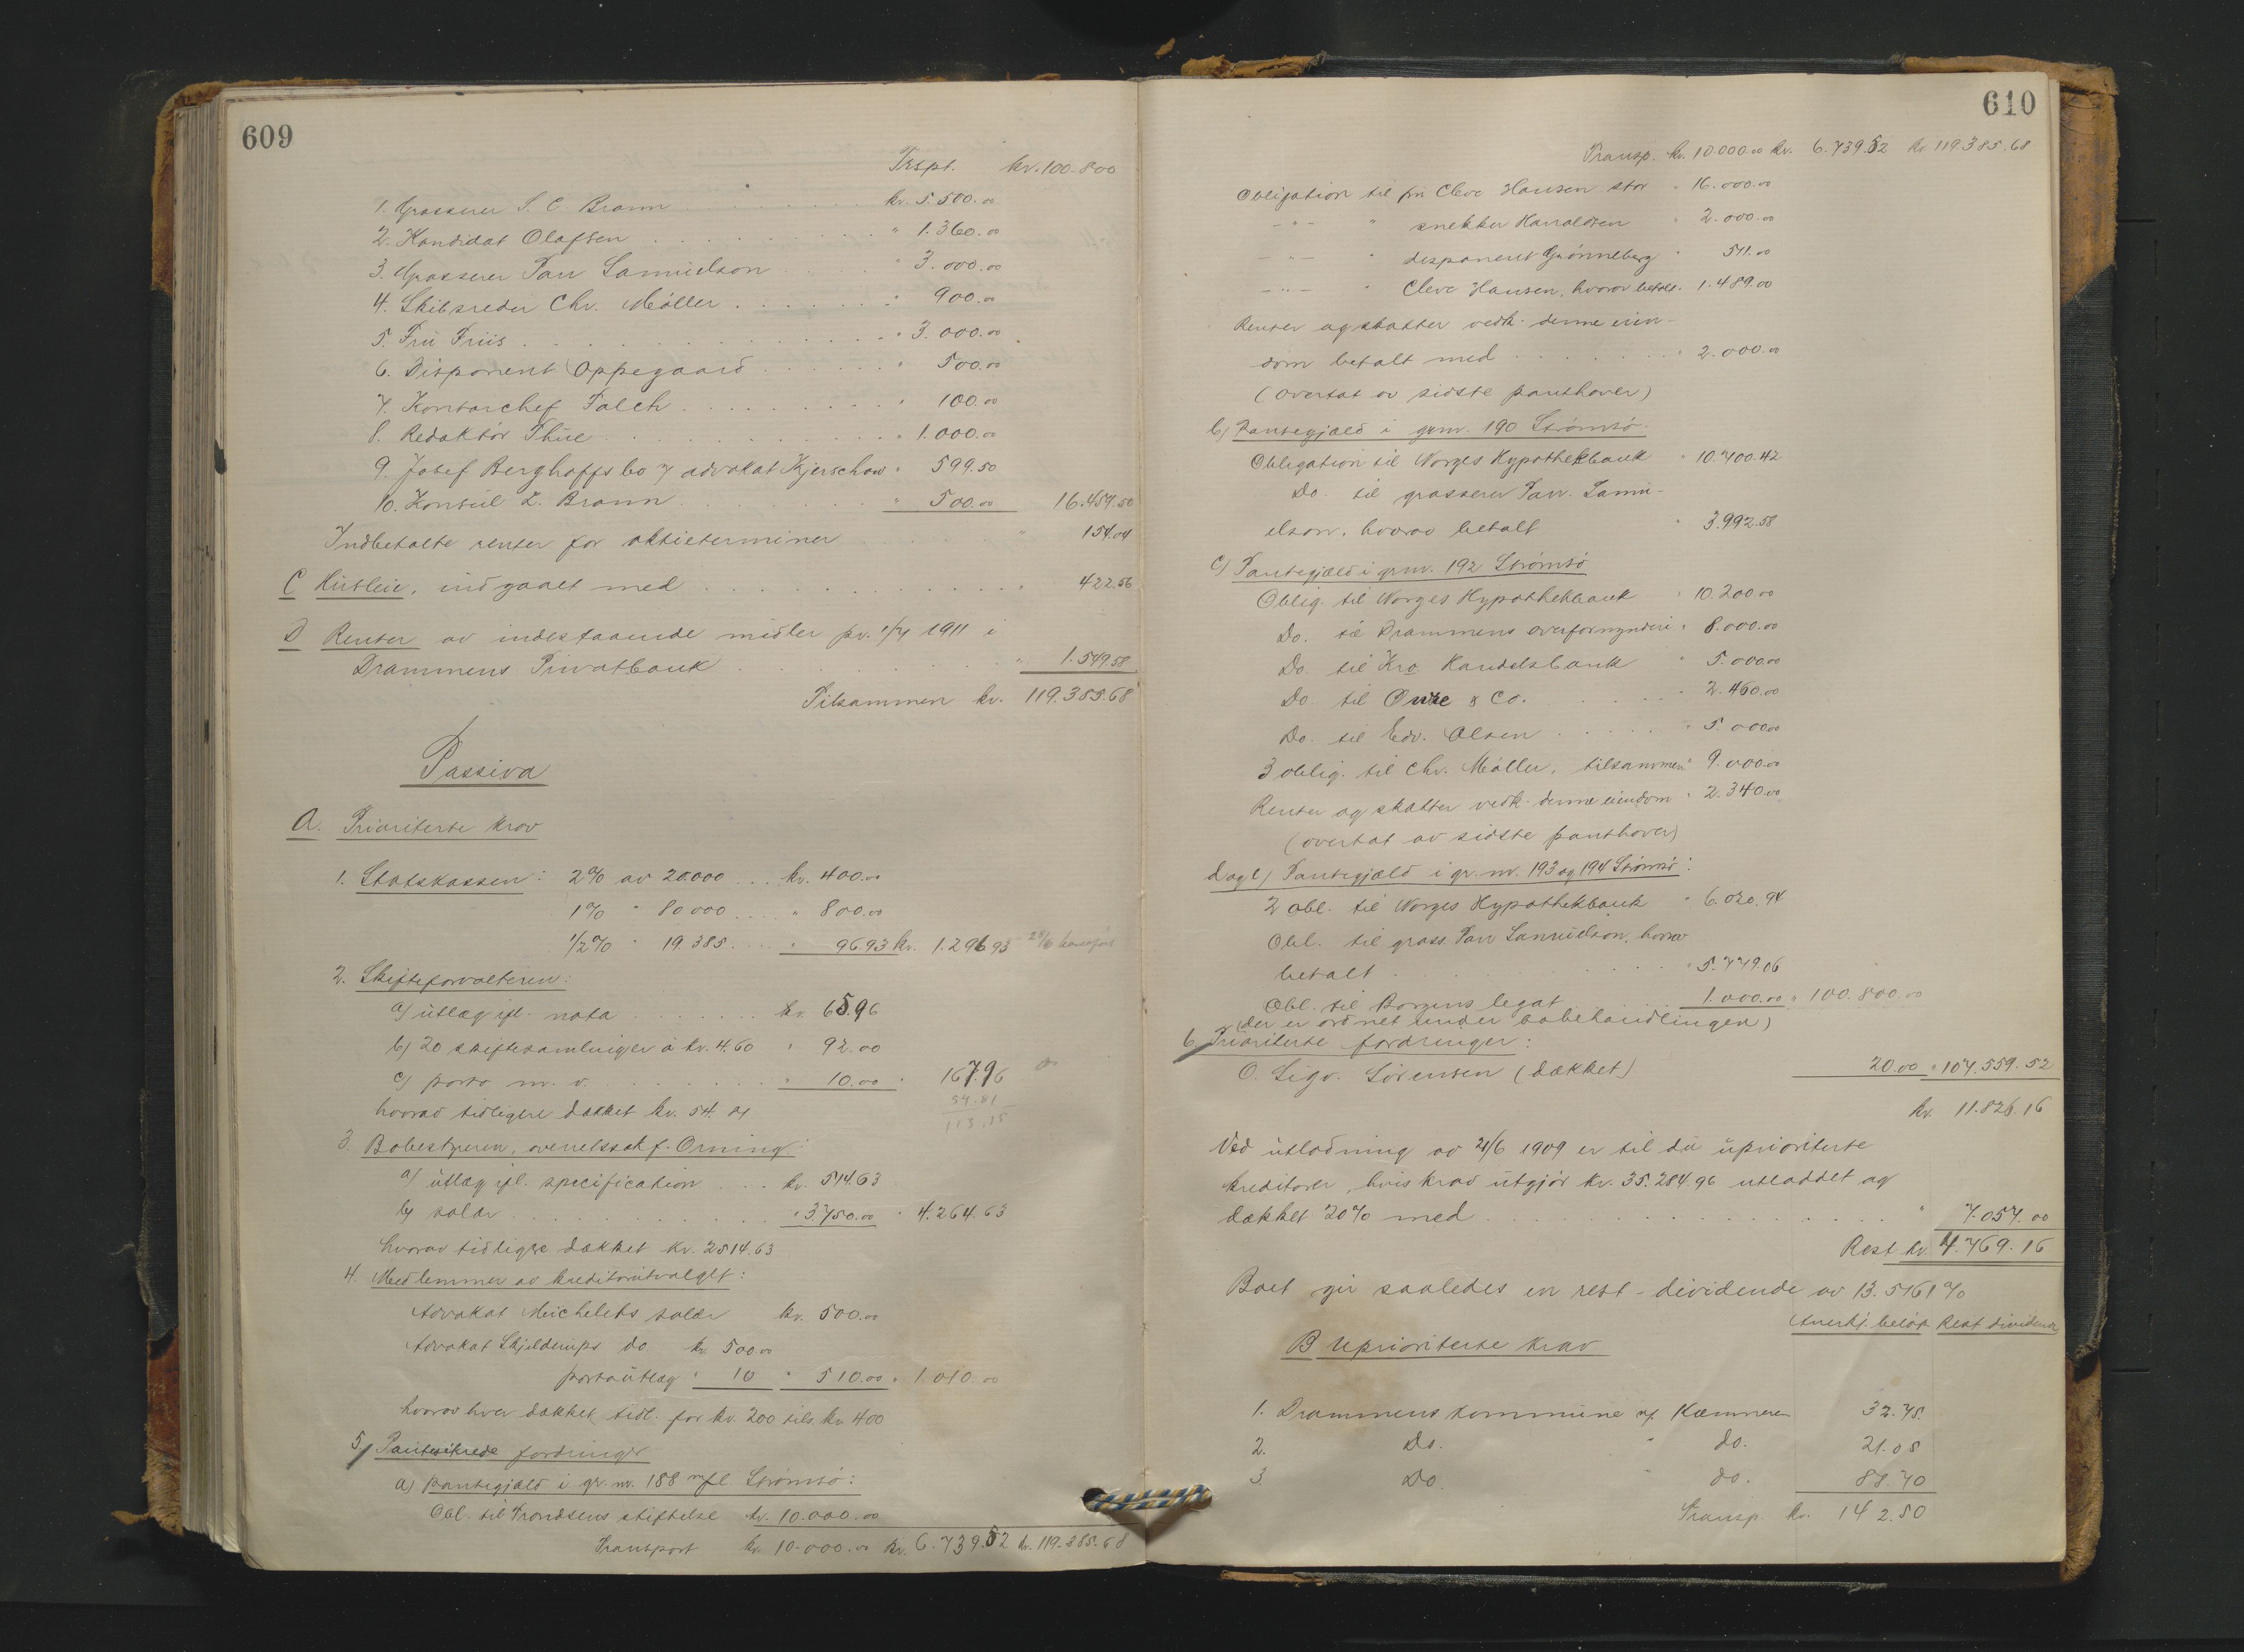 609
Trspt. kr. 100.800
1. Grosserer S. C. Brann . . . . . kr. 5.500.00
2. Kandidat Olafsen . . . . . " 1.360.00
3. Grosserer Parr Samuelson . . . " 3.000.00
4. Skibsreder Chr. Møller . . . . . " 900.00
5. Fru Friis . . . . . " 3.000.00
6. Disponent Oppegaard . . . . . " 500.00
7. Kontorchef Falch . . . . . " 100.00
8. Redaktør Thue . . . . . " 1.000.00
9. Josef Berghoffs bo v/ advokat Kjerschow " 599.50
10. Konsul L. Brann . . . . . " 500.00 16.459.50
Indbetalte renter for aktieterminer . . . . " 154.04
C Husleie, indgaaet med . . . . . " 422.56
D Renter av indestaaende midler pr. 1/7 1911 i
Drammens Privatbank . . . . . " 1.549.58
Tilsammen kr. 119.385.68
Passiva
A. Prioriterte krav
1. Statskassen: 2% av 20.000 . . . kr. 400.00
1% " 80 000 . . . " 800.00
1/2% " 19.385 . . . " 96.93 kr. 1.296.93
2. Skifteforvalteren:
a) utlæg ifl. nota . . . . . kr. 65.96
b) 20 skiftesamlinger à kr. 4.60 " 92.00
c) porto m. v. . . . . . " 10.00 " 167.96
54.81
hvorav tidligere dækket kr. 54.81
113.15
3. Bobestyreren, overretssakf. Orning:
a) utlæg ifl. specification . . . kr. 514.63
b) salær . . . . . " 3.750.00 " 4.264.63
hvorav tidligere dækket kr. 2514.63
4. Medlemmer av kreditorutvalget:
Advokat Michelets salær kr. 500.00
Advokat Skjelderups do kr. 500.00
portoutlæg " 10 " 510.00 " 1.010.00
hvorav hver dækket tidl. for kr. 200 tils. kr. 400
5. Pantesikrede fordringer
a) Pantegjæld i gr. nr. 188 mfl. Strømsø:
Obl. til Trondsens stiftelse kr. 10.000.00
Transport kr. 10.000.00 kr. 6.739.52 kr. 119.385.68
610
Transp. kr. 10.000.00 kr. 6.739.52 kr. 119.385.68
Obligation til fru Cleve Hansen stor " 16.000.00
- " - " snekker Haraldsen " 2.000.00
- " - " disponent Grønneberg " 511.00
- " - " Cleve Hansen, hvorav betalt " 1.489.00
Renter og skatter vedk. denne eien-
dom betalt med . . . . . " 2.000.00
(overtat av sidste panthaver)
b) Pantegjæld i grnr. 190 Strømsø
Obligation til Norges Hypothekbank " 10.700.42
Do. til grosserer Parr. Samu-
elson, hvorav betalt " 3.992.58
c) Pantegjæld i grnr. 192 Strømsø
Oblig. til Norges Hypothekbank " 10.200.00
Do. til Drammens overformynderi " 8.000.00
Do. til Kra Handelsbank " 5.000.00
Do. til & Co. . . . . " 2.460.00
Do. til Edv. Olsen . . . . . " 5.000.00
3 oblig. til Chr. Møller, tilsammen " 9.000.00
Renter og skatter vedk. denne eiendom " 2.340.00
(overtat av sidste panthaver)
d og e) Pantegjæld i gr. nr. 193 og 194 Strømsø:
2 obl. til Norges Hypothekbank " 6.020.94
Obl. til gross. Parr Samuelson, hvorav
betalt . . . . . " 5.779.06
Obl. til Borgens legat . . . . 1.000.00 " 100.800.00
(der er ordnet under bobehandlingen)
6. Prioriterte fordringer:
O. Sigv. Sørensen (dækket) 20.00 " 107.559.52
kr. 11.826.16
Ved utlodning av 21/6 1909 er til de uprioriterte
kreditorer, hvis krav utgjør kr. 35.284.96 utloddet og
dækket 20% med . . . . . " 7.057.00
Rest kr. 4.769.16
Boet gir saaledes en rest-dividende av 13.5161%
Anerkj. beløp Rest dividende
B Uprioriterte krav
1. Drammens kommune v/ Kæmneren 32.75
2. Do. " do. 21.05
3. Do. " do. 88.70
Transp. kr. 142.50